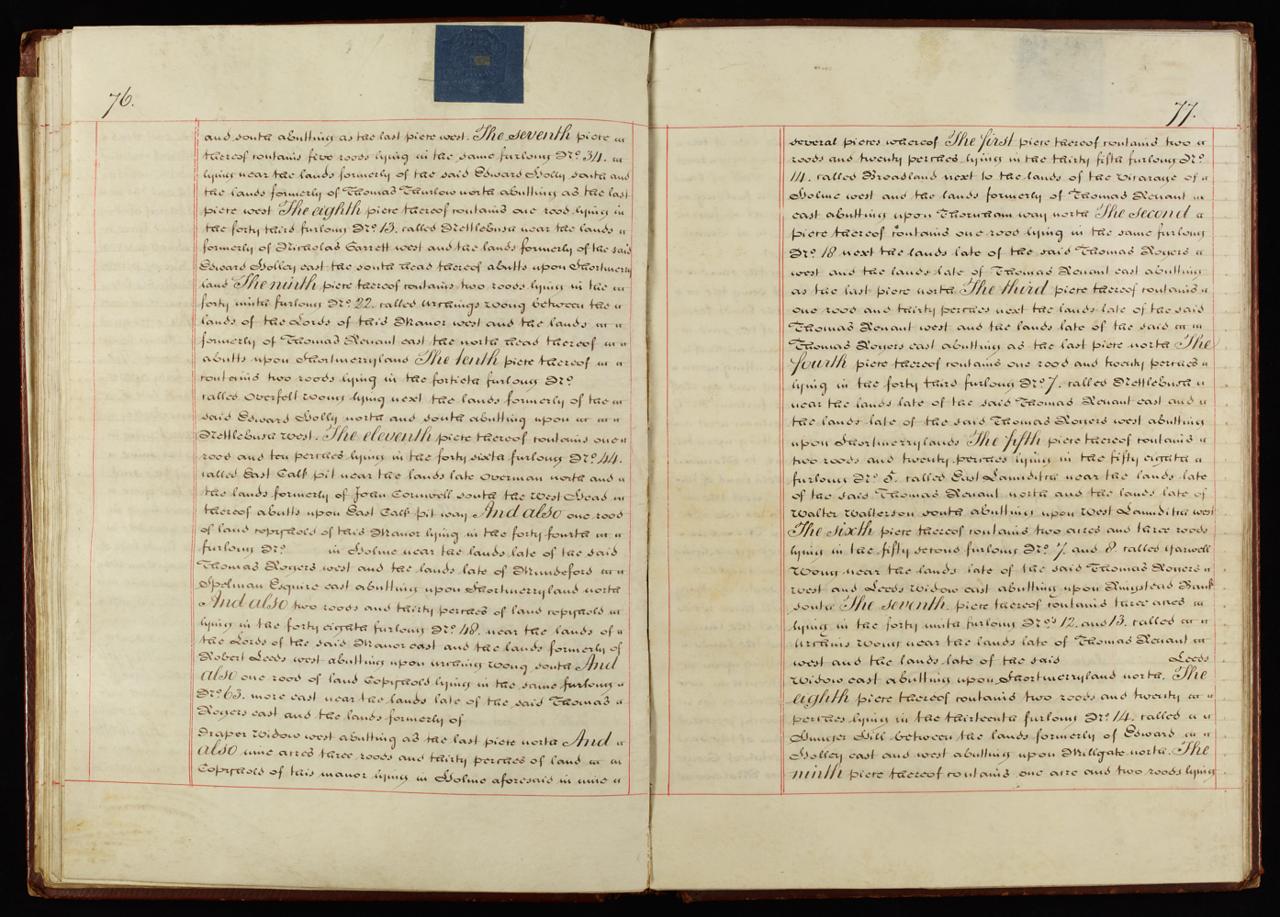 76.
and south abutting as the last piece west. The seventh piece
thereof contains five roods lying in the same furlong No. 34.
lying near the lands formerly of the said Edward Holly south and
the lands formerly of Thomas Thurlow north abutting as the last
piece west The eighth piece thereof contains one rood lying in
the forty third furlong No. 43. called Nettlebush near the lands
formerly of Nicholas Garrett west and the lands formerly of the said
Edward Holley east the south head thereof abutts upon Shortmerry
land The ninth piece thereof contains two roods lying in the
forty ninth furlong No. 22. called Urchings wong between the
lands of the Lords of this Manor west and the lands
formerly of Thomas Renant east the north head thereof
abutts upon Shortmerryland The tenth piece thereof
contains two roods lying in the fortieth furlong No.
called Overfell wong lying next the lands formerly of the
said Edward Holly north and south abutting upon
Nettlebush West. The eleventh piece thereof contains one
rood and ten perches lying in the forty sixth furlong No. 44.
called East Calk pit near the lands late Overman north and
the lands formerly of John Cornwell south the West Head
thereof abutts upon East Calk pit way And also one rood
of land copyhold of this Manor lying in the forty fourth
furlong No. in Holme near the lands late of the said
Thomas Rogers west and the lands late of Mundeford
Spelman Esquire east abutting upon Shortmerryland north
And also two roods and thirty perches of land copyhold
lying in the forty eighth furlong No. 48. near the lands of
the Lords of the said Manor east and the lands formerly of
Robert Leeds west abutting upon urching wong south And
also one rood of land Copyhold lying in the same furlong
No. 63. more east near the lands late of the said Thomas
Rogers east and the lands formerly of
Draper Widow west abutting as the last piece north And
also nine acres three roods and thirty perches of land
Copyhold of this manor lying in Holme aforesaid in nine
77.
several pieces whereof The first piece thereof contains two
roods and twenty perches lying in the thirty fifth furlong No.
14. called Broadland next to the lands of the Vicarage of
Holme west and the lands formerly of Thomas Renant
east abutting upon Thornham way north The second
piece thereof contains one rood lying in the same furlong
No. 18 next the lands late of the said Thomas Rogers
west and the lands late of Thomas Renant east abutting
as the last piece north The third piece thereof contains
one rood and thirty perches next the lands late of the said
Thomas Renant west and the lands late of the said
Thomas Rogers east abutting as the last piece north The
fourth piece thereof contains one rood and twenty perches
lying in the forty third furlong No. 7. called Nettlebush
near the lands late of the said Thomas Renant east and
the lands late of the said Thomas Rogers west abutting
upon Shortmerrylands The fifth piece thereof contains
two roods and twenty perches lying in the fifty eighth
furlong No. 5. called East Launditch near the lands late
of the said Thomas Renant north and the lands late of
Walter Walterson south abutting upon West Launditch west
The sixth piece thereof contains two acres and three roods
lying in the fifty second furlong No. 7. and 8. called Yarwell
Wong near the lands late of the said Thomas Rogers
west and Leeds Widow east abutting upon Ringstead Bank
south The seventh piece thereof contains three acres
lying in the forty ninth furlong No.s 12. and 13. called
Urchins wong near the lands late of Thomas Renant
west and the lands late of the said Leeds
Widow east abutting upon Shortmerryland north. The
eighth piece thereof contains two roods and twenty
perches lying in the thirteenth furlong No. 14. called
Hunger Hill between the lands formerly of Edward
Holley east and west abutting upon Millgate north. The
ninth piece thereof contains one acre and two roods lying